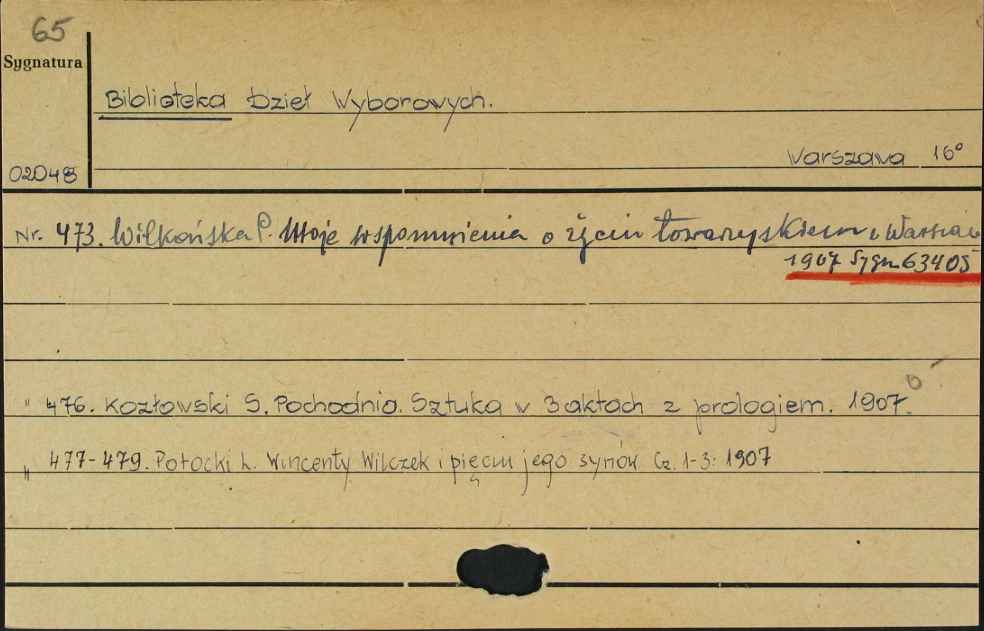 65
Sygnatura
Biblioteka Dzieł Wyborowych.
Warszawa 16°
02048
Nr. 473. Wilkońska P. Moje wspomnienia o życiu towarzyskiem w Warszaw
1907 Sygn 63405
" 476. Kozłowski S. Pochodnia. Sztuka w 3 aktach z prologiem. 1907.
" 477-479. Potocki L. Wincenty Wilczek i pięciu jego synów. Cz. 1-3. 1907